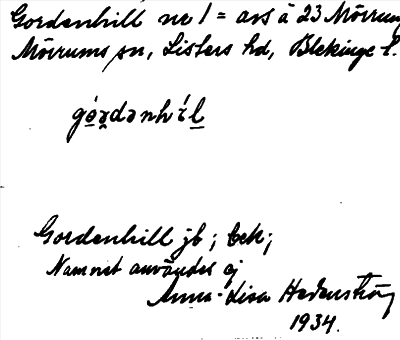 Gordenhill nr 1 = avs å 23 Mörrum
Mörrums sn, Listers hd, Blekinge l.
Gordenhill jb; Eek;
Namnet användes ej
Anna-Lisa Hedenström
1934.